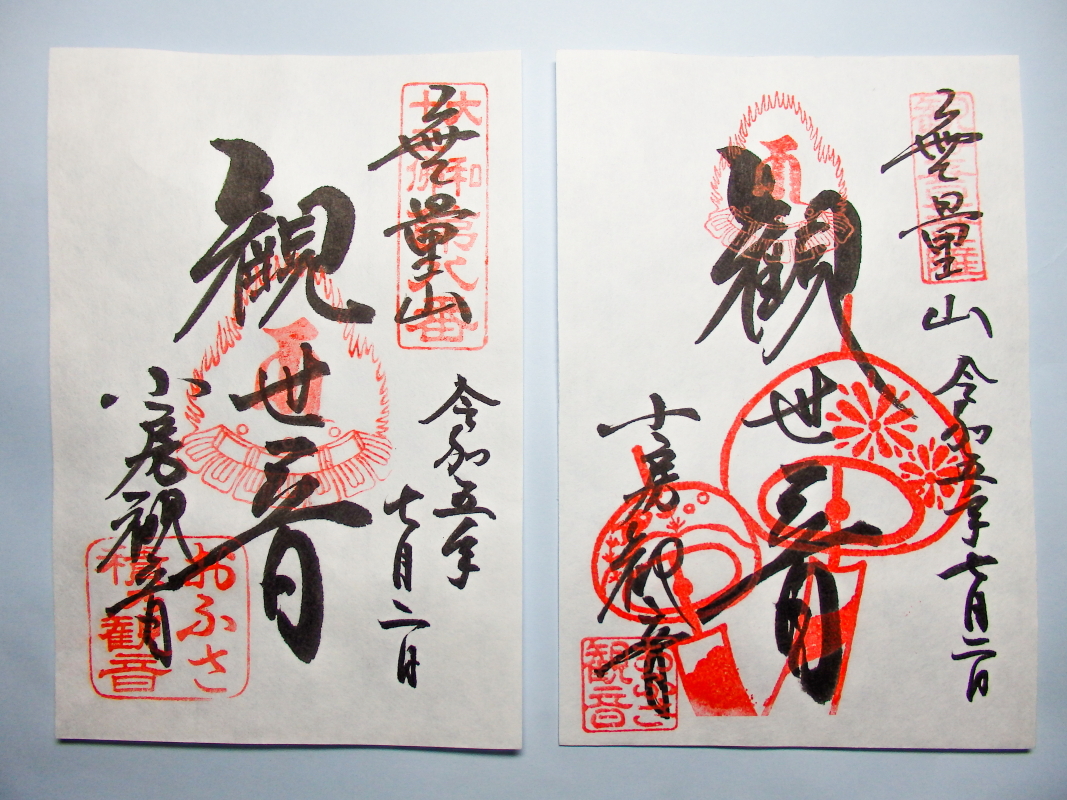 無量山
大和
第八番
令和五年
七月二日
観世音
小房観音
おふさ
観音
無量山
令和五年七月二日
観世音
小房観音
おふさ
観音